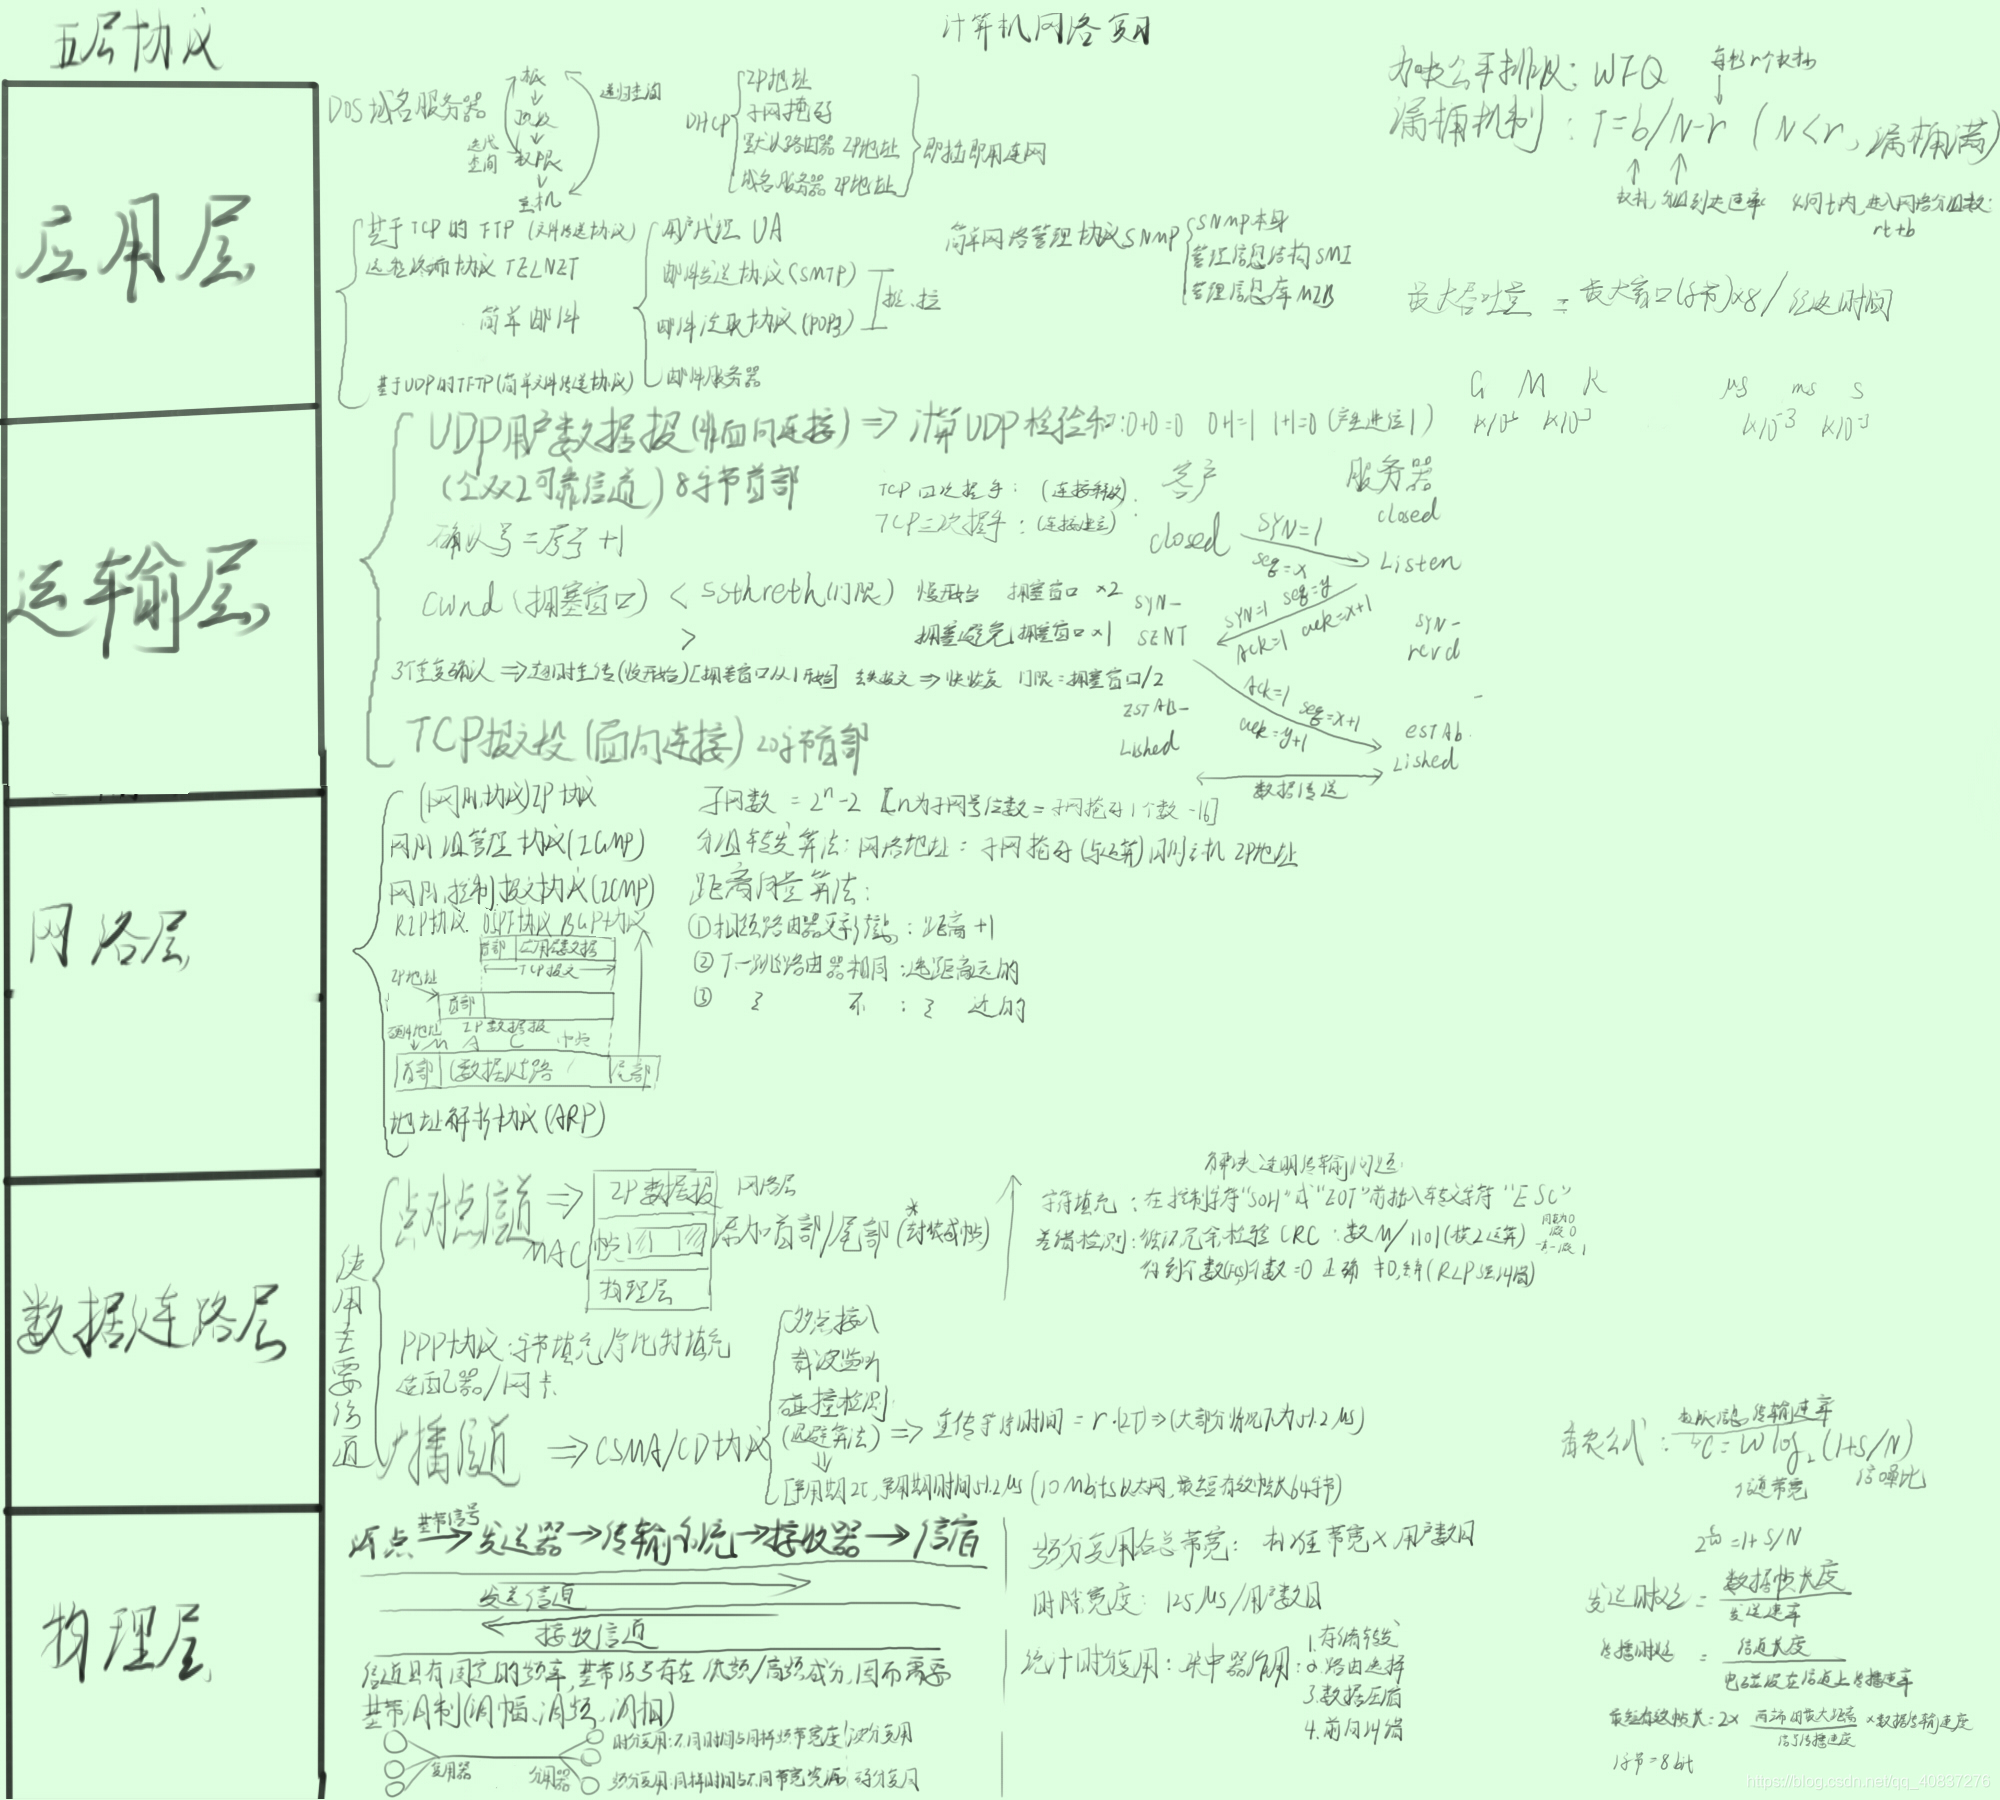 计算机网络复习
五层协议
应用层
DOS域名服务器
根
顶级
权限
主机
迭代
查询
递归查询
DHCP
IP地址
子网掩码
默认路由器 IP地址
域名服务器 IP地址
即插即用连网
加权公平排队: WFQ
漏桶机制: T=b/N-r (N<r, 漏桶满)
权标, 分组到达速率
时间t内,进入网络分组数:
rt+b
基于TCP的 FTP (文件传送协议)
远程终端协议 TELNET
简单邮件
基于UDP的TFTP(简单文件传送协议)
用户代理 UA
邮件发送协议(SMTP)
邮件读取协议(POP3)
邮件服务器
推、拉
简单网络管理协议SNMP
SNMP本身
管理信息结构SMI
管理信息库MIB
最大吞吐量 = 最大窗口(字节)×8/往返时间
G M K
μs ms s
运输层
UDP用户数据报(非面向连接) => 计算UDP检验和:0+0=0 0+1=1 1+1=0 (产生进位1)
(全双工可靠信道) 8字节首部
确认号=序号+1
cwnd (拥塞窗口) < ssthreth(门限) 慢开始 拥塞窗口 ×2
> 拥塞避免,拥塞窗口×1
3个重复确认 => 超时重传(慢开始)[拥塞窗口从1开始] 丢失报文 => 快恢复 门限=拥塞窗口/2
TCP报文段(面向连接) 20字节首部
TCP四次握手: (连接释放)
TCP三次握手: (连接建立)
客户
服务器
closed
closed
SYN=1
seq=x
Listen
SYN-
SENT
SYN=1 seq=y
ACK=1 ack=x+1
SYN-
revd
ACK=1 seq=x+1
ack=y+1
ESTAB-
Lished
estAb
Lished
数据传送
网络层
(网际协议)IP协议
网际组管理协议(IGMP)
网际控制报文协议(ICMP)
RIP协议. OSPF协议 BGP协议
首部 应用层数据
TCP报文
IP地址
首部
IP数据报
硬件地址
M A C 帧
首部 (数据链路 尾部
地址解析协议(ARP)
子网数 = 2ⁿ-2 【n为子网号位数=子网掩码1个数-16]
分组转发算法:网络地址 = 子网掩码(与运算)网间主机 IP地址
距离向量算法:
①相邻路由器 : 距离+1
②下一跳路由器相同 : 选距离远的
③ ~ 不 : ~ 近的
数据连路层
使用主要信道
点对点信道 =>
IP数据报
网络层
MAC
帧
添加首部/尾部 (封装成帧)
物理层
PPP协议:字节填充/零比特填充
适配器/网卡
广播信道 => CSMA/CD协议
多点接入
载波监听
碰撞检测
(退避算法) => 重传等待时间 = r·(2T) => (大部分情况下为51.2μs)
[争用期2T, 争用期时间51.2μs (10Mbit/s以太网,最短有效帧长64字节)
解决透明传输问题:
字符填充 : 在控制字符"SOH"或"EOT"前插入转义字符"ESC"
差错检测:循环冗余检验 CRC : 数M/1101(模2运算)
香农公式: C=Wlog₂(1+S/N)
极限信息传输速率
信道带宽
信噪比
物理层
源点
基带信号
发送器→传输系统→接收器→信宿
发送信道
接收信道
信道具有固定的频率,基带信号存在低频/高频成分,因而需要
基带调制(调幅、调频、调相)
复用器
分用器
时分复用:不同时间占同样频带宽度 波分复用
频分复用:同样时间占不同带宽资源 码分复用
频分复用合总带宽: 标准带宽×用户数目
时隙宽度: 125μs/用户数目
统计时分复用: 集中器作用:
1.存储转发
2.路由选择
3.数据压缩
4.前向纠错
发送时延 = 数据帧长度
发送速率
传播时延 = 信道长度
电磁波在信道上传播速率
最短有效帧长=2× 两端的最大距离 ×数据传输速度
信号传播速度
1字节=8bit
https://blog.csdn.net/qq_40837276